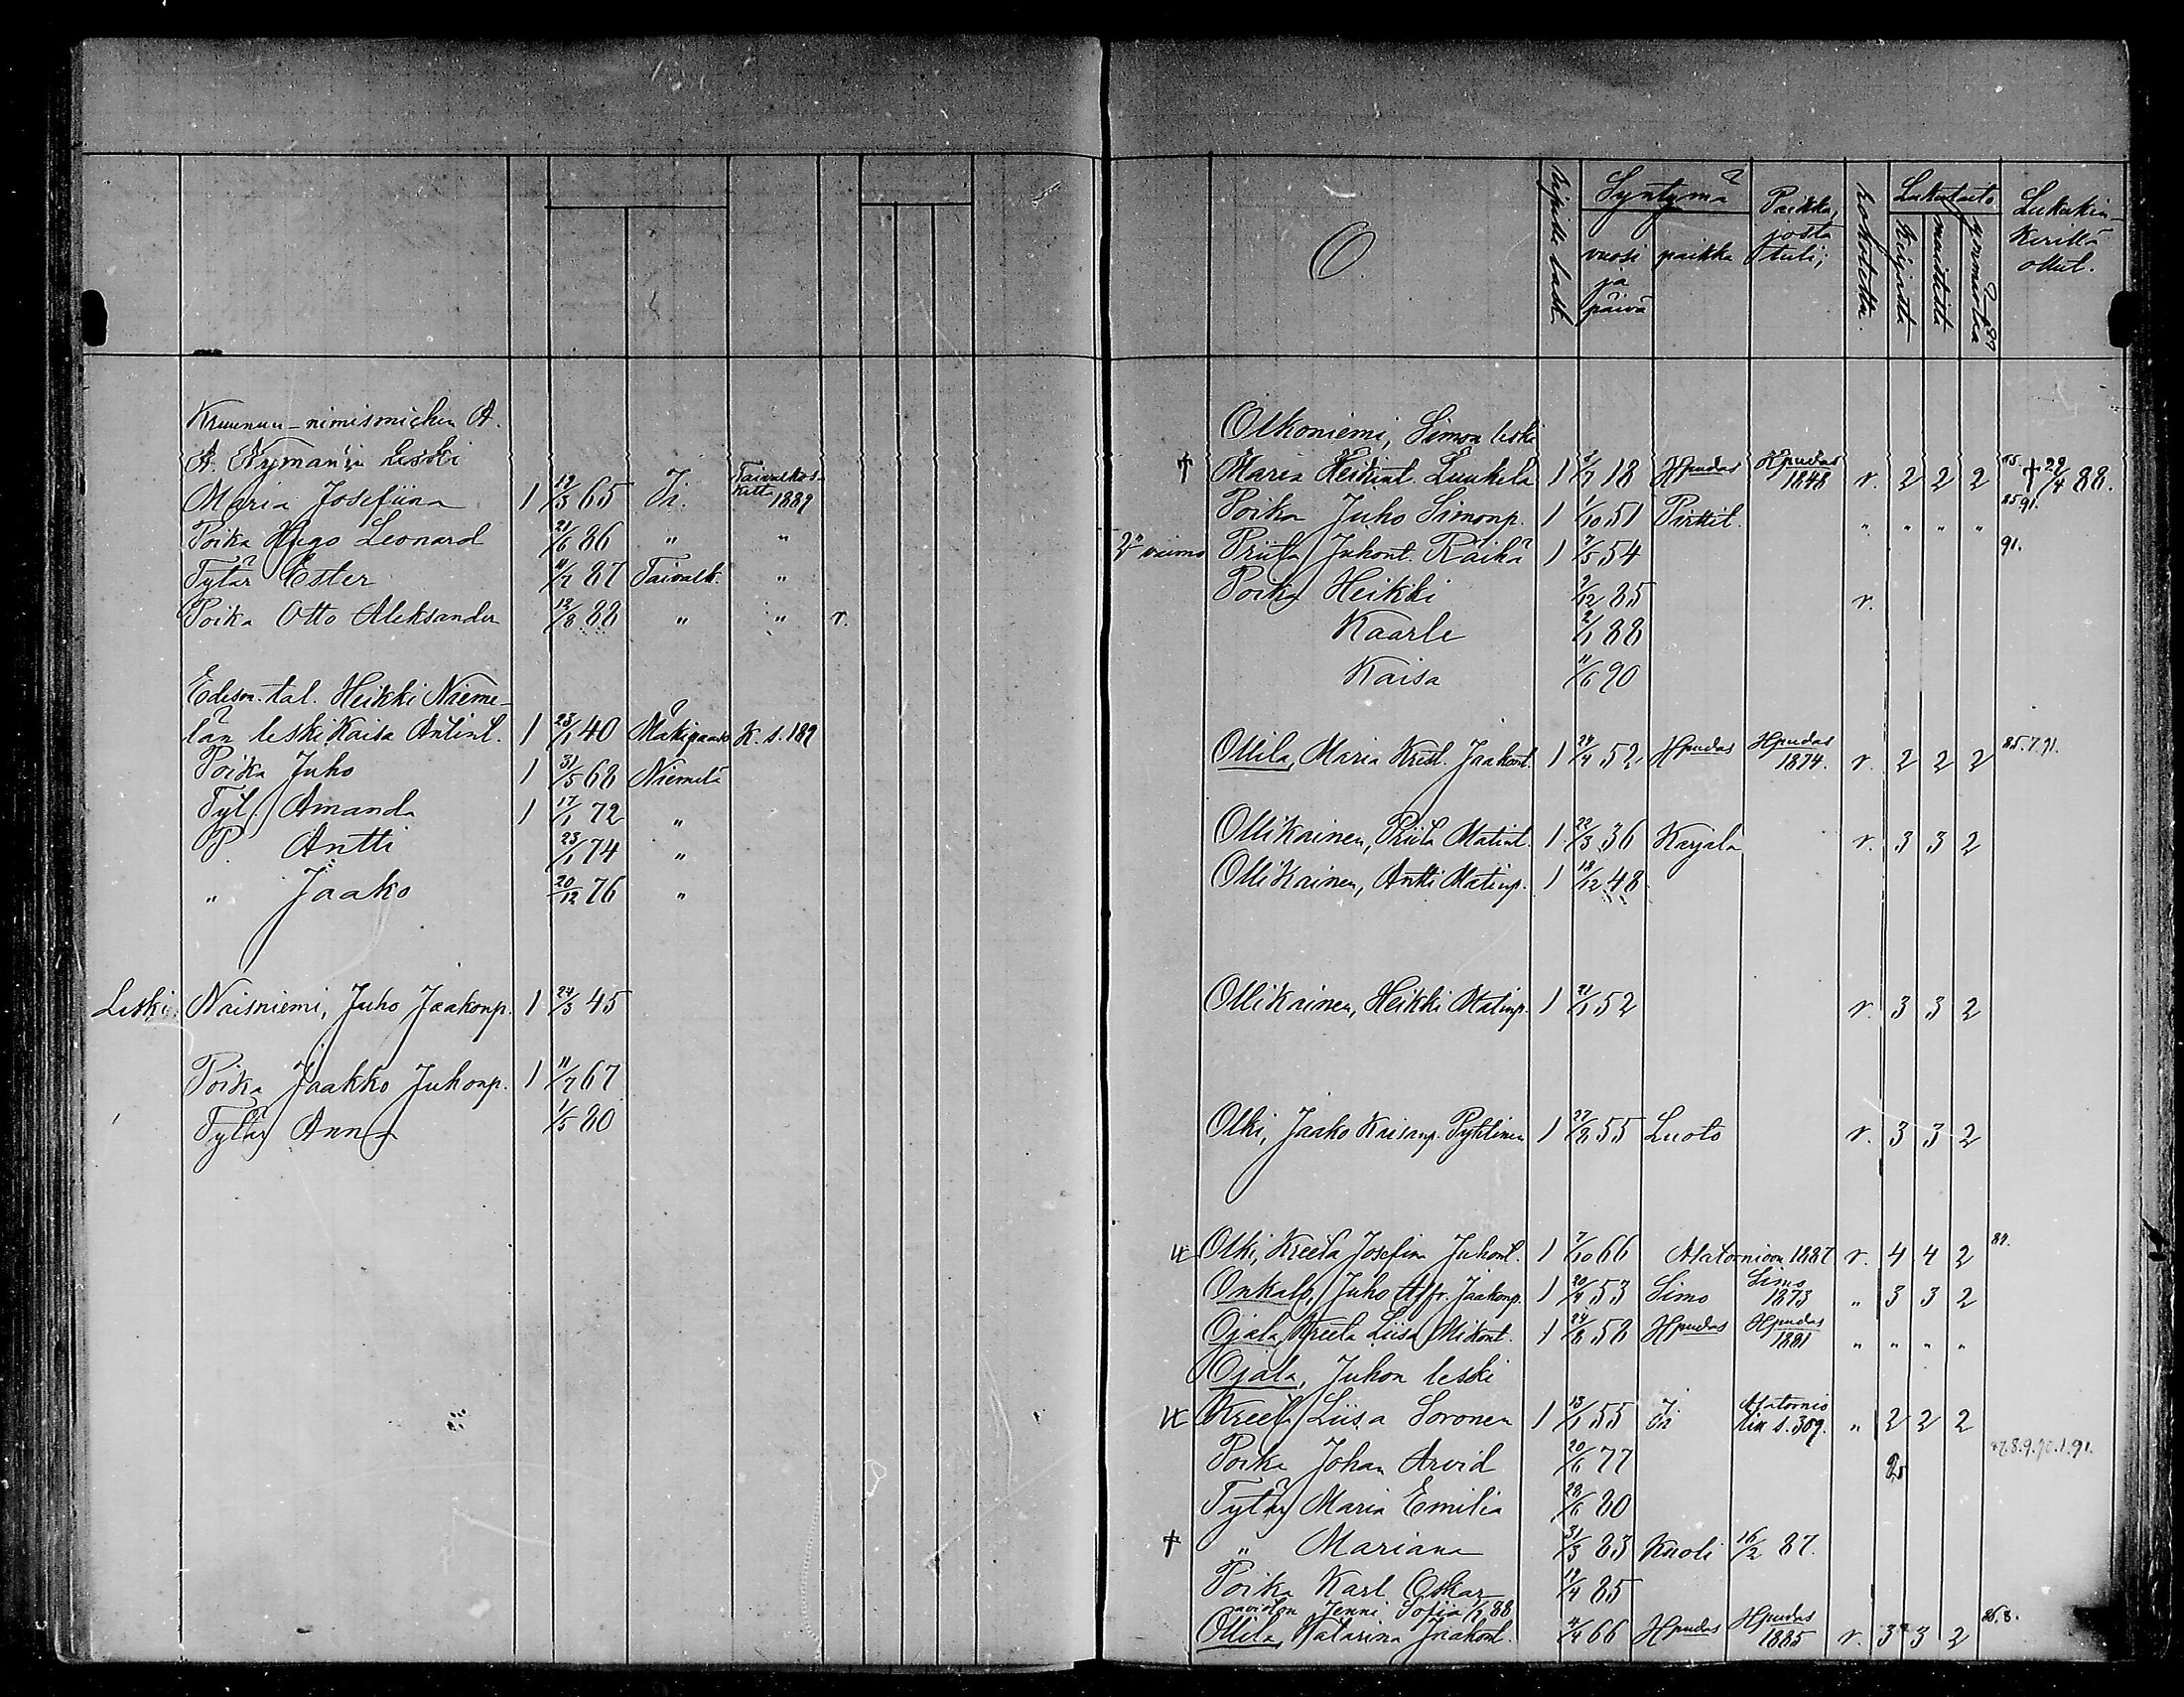 Kruunun-nimismiehen A.
A. Nyman'in Leski
Maria Josefiina 1 19/3 65 Ii. Taivalkos- 1889
Poika Hugo Leonard 21/6 86 " "
Tytär Ester 11/7 87 Taivalk. "
Poika Otto Aleksander 12/8 88 " " r.
Edesm. tal. Heikki Nieme-
län leski Kaisa Antint. 1 23/1 40 K. s. 189
Poika Juho 1 31/5 68 Niemelä
Tyt. Amanda 1 17/1 72 "
P. Antti 23/1 74 "
" Jaako 20/12 76 "
Leski Naisniemi, Juho Jaakonp. 1 24/3 45
Poika Jaakko Juhonp. 1 11/7 67
Tytär Anna 1/5 80
O.
Syntymä
vuosi ja päivä
paikka
Paikka, josta tuli;
rokotettu.
Lukutaito
kirjasta
muistista
ymmärtää
Lukukin-
kerillä
ollut.
Olkoniemi, Simon leski
† Maria Heikint. Luukela 1 2/7 18 Hpudas Hpudas 1848 r. 2 2 2 85. † 22/4 88.
Poika Juho Simonp. 1 1/10 51 Pirttit. " " " " 85.91.
2n vaimo Priita Juhont. Räihä 1 7/5 54 91.
Poika Heikki 2/12 85 r.
Kaarle 2/1 88
Kaisa 11/6 90
Ollila, Maria Krist. Jaakont. 1 24/4 52 Hpudas Hpudas 1874. r. 2 2 2 85.7.91.
Ollikainen, Priita Matint. 1 22/3 36 Karjala r. 3 3 2
Ollikainen, Antti Matinp. 1 18/12 48
Ollikainen, Heikki Matinp. 1 21/1 52 r. 3 3 2
Olki, Jaako Kaisanp. Pyhtinen 1 27/8 55 Luoto r. 3 3 2
Olki, Kreeta Josefina Juhont. 1 7/10 66 Alatornioon 1887 r. 4 4 2
Onkalo, Juho Alfr. Jaakonp. 1 20/4 53 Simo Simo 1873 " 3 3 2
Ojala, Kreeta Liisa Mikont. 1 24/8 58 Hpudas Hpudas 1881 " " " "
Ojala, Juhon leski
Kreeta Liisa Soronen 1 13/1 55 Ii Alatornio s. 309. " 2 2 2
Poika Johan Arvid 20/6 77
Tytär Maria Emilia 28/6 80
† " Mariana 31/3 83 Kuoli 16/2 87.
Poika Karl Oskar 19/4 85
avioton Jenni Sofia 1/1 88
Ollila, Katarina Jaakont. 4/4 66 Hpudas Hpudas 1885 r. 3 3 2 86.8.